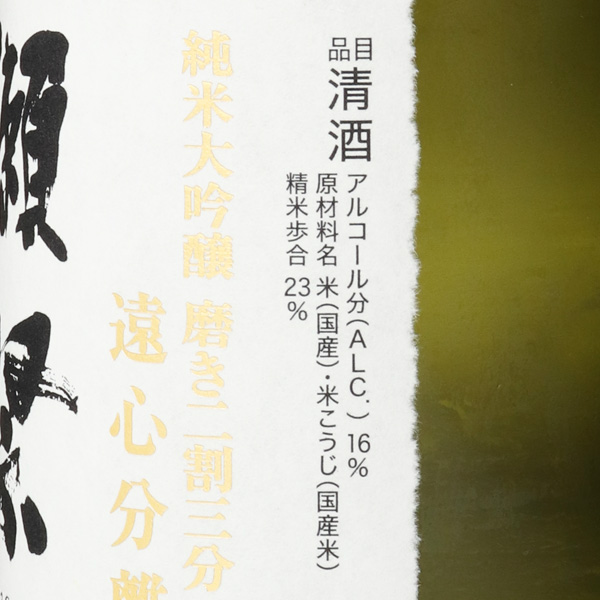 品目 清酒
アルコール分(ALC.) 16%
原材料名 米(国産)・米こうじ(国産米)
精米歩合 23%
純米大吟醸 磨き二割三分
遠心分